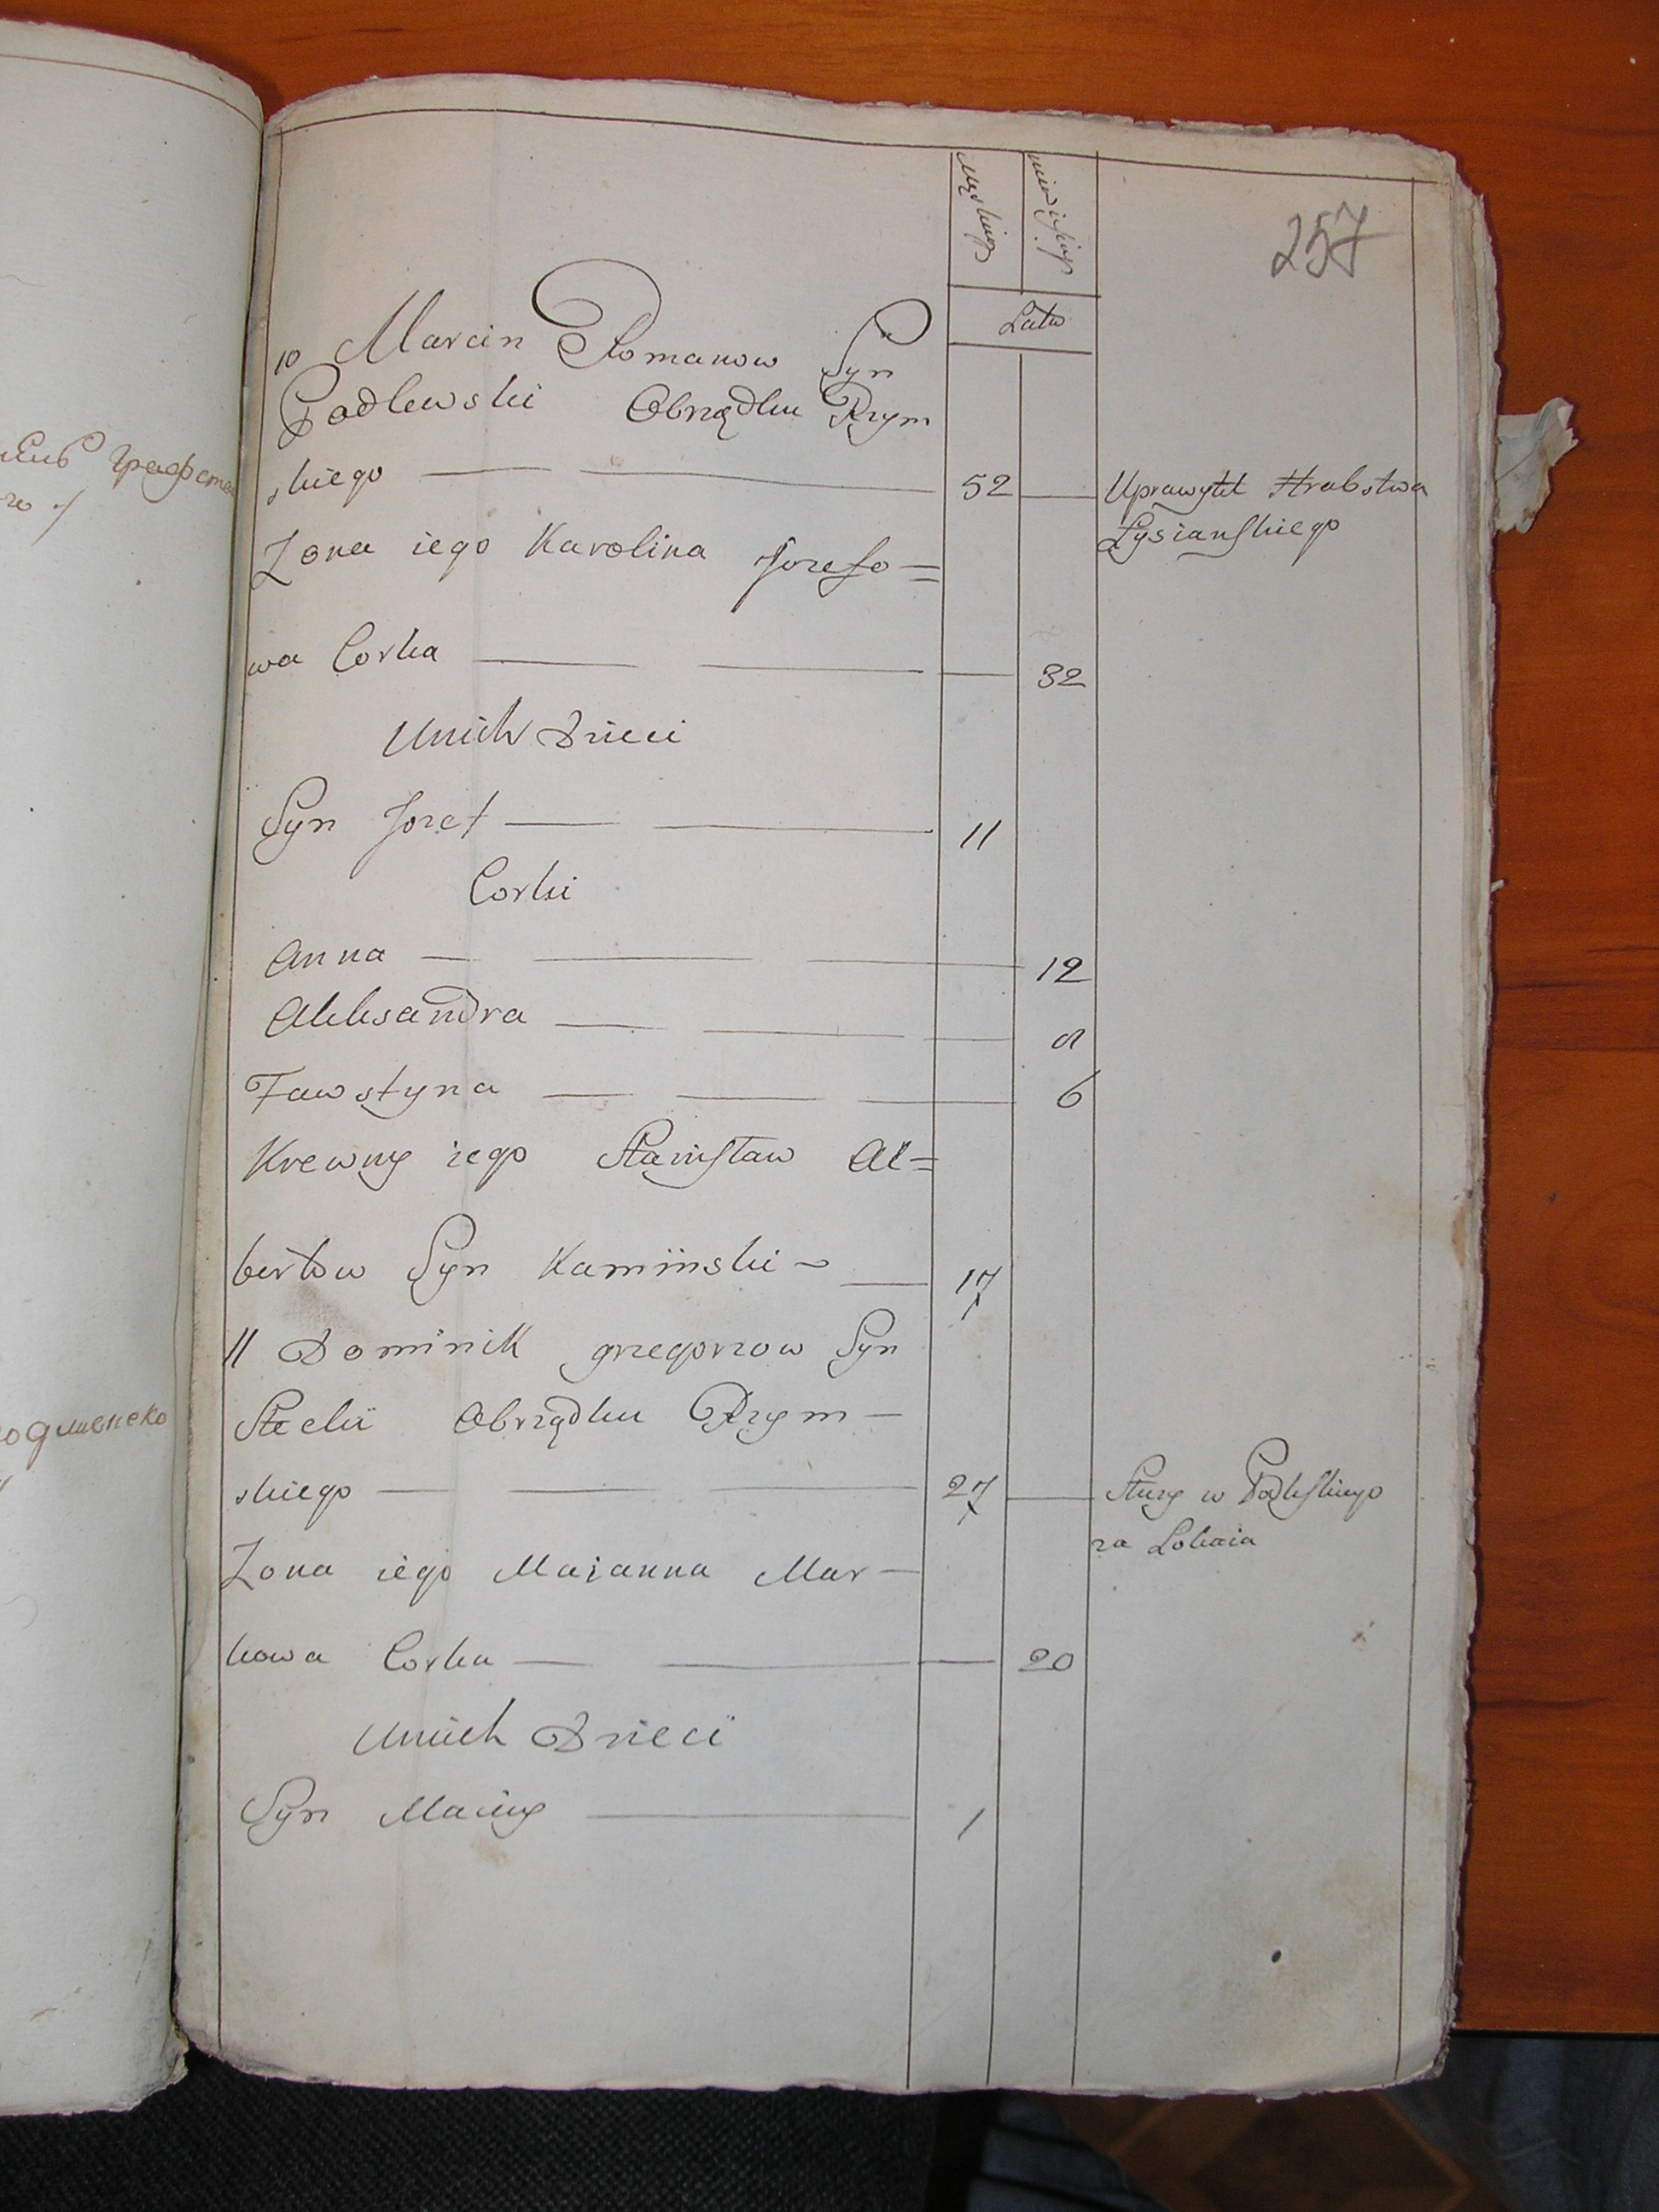 257
Męskiego
niewieściego
Lata
10 Marcin Romanow Syn
Podlewski Obrządku Rzym
skiego 52 Uprawytel Hrabstwa
Łysianskiego
Zona iego Karolina Jozefo=
wa Corka 32
Unich Dzieci
Syn Jozef 11
Corki
Anna 12
Aleksandra 8
Fawstyna 6
Krewny iego Stanisław Al=
bertow Syn Kamiński 17
11 Dominik grzegorzow Syn
Stecki Obrządku Rzym-
skiego 27 Służy w Podleskiego
za Lokaia
Zona iego Maianna Mar-
kowa Corka 20
Unich Dzieci
Syn Maciey 1